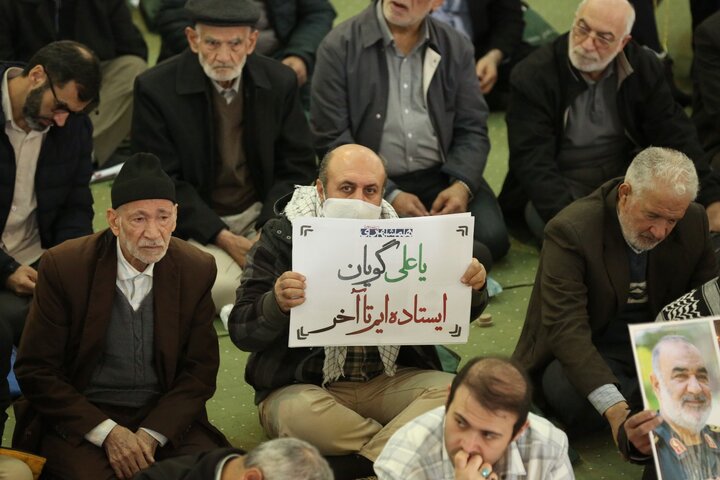 یا علی گویان
ایستاده ایم تا آخر